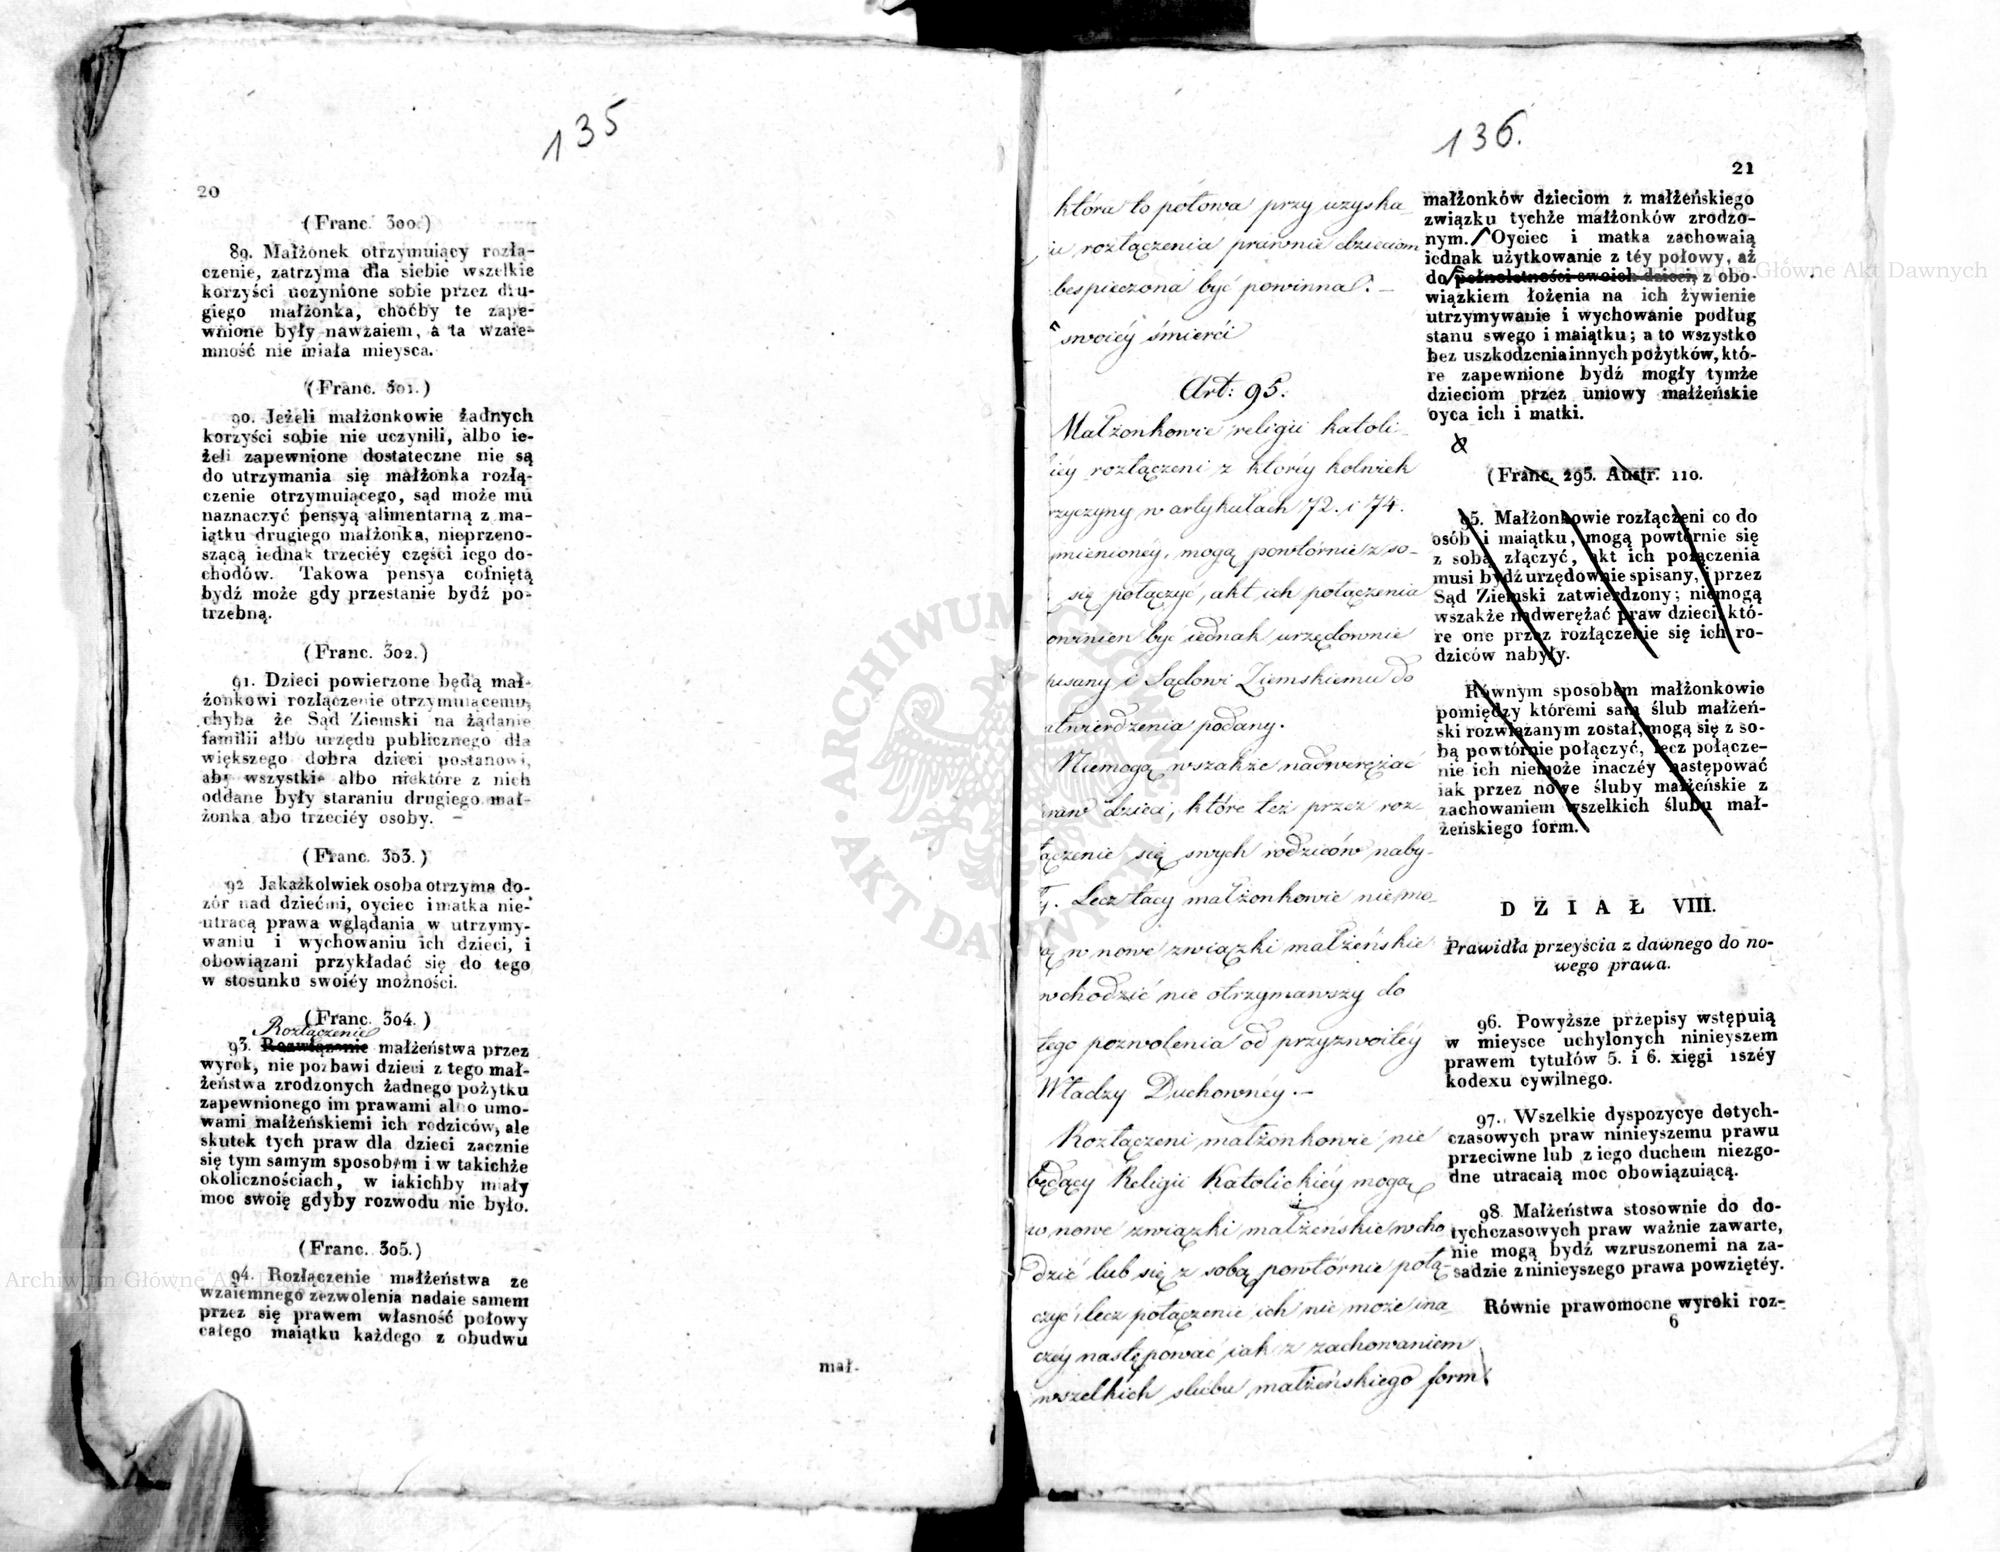 135
20
(Franc. 300.)
89. Małżonek otrzymuiący rozłą-
czenie, zatrzyma dla siebie wszelkie
korzyści uczynione sobie przez dru-
giego małżonka, choćby te zape-
wnione były nawzaiem, a ta wzaie-
mność nie miała mieysca.
(Franc. 301.)
90. Jeżeli małżonkowie żadnych
korzyści sobie nie uczynili, albo ie-
żeli zapewnione dostateczne nie są
do utrzymania się małżonka rozłą-
czenie otrzymuiącego, sąd może mu
naznaczyć pensyą alimentarną z ma-
iątku drugiego małżonka, nieprzeno-
szącą iednak trzeciéy części iego do-
chodów. Takowa pensya cofniętą
bydź może gdy przestanie bydź po-
trzebną.
(Franc. 302.)
91. Dzieci powierzone będą mał-
żonkowi rozłączenie otrzymuiącemu,
chyba że Sąd Ziemski na żądanie
familii albo urzędu publicznego dla
większego dobra dzieci postanowi,
aby wszystkie albo niektóre z nich
oddane były staraniu drugiego mał-
żonka abo trzeciéy osoby.
(Franc. 303.)
92 Jakażkolwiek osoba otrzyma do-
zór nad dziećmi, oyciec i matka nie-
utracą prawa wglądania w utrzymy-
waniu i wychowaniu ich dzieci, i
obowiązani przykładać się do tego
w stosunku swoiéy możności.
(Franc. 304.)
Rozłączenie
93. Rozwiązanie małżeństwa przez
wyrok, nie pozbawi dzieci z tego mał-
żeństwa zrodzonych żadnego pożytku
zapewnionego im prawami albo umo-
wami małżeńskiemi ich rodziców, ale
skutek tych praw dla dzieci zacznie
się tym samym sposobem i w takichże
okolicznościach, w iakichby miały
moc swoię gdyby rozwodu nie było.
(Franc. 305.)
94. Rozłączenie małżeństwa ze
wzaiemnego zezwolenia nadaie samem
przez się prawem własność połowy
całego maiątku każdego z obudwu
mał-
136.
21
która to połowa przy uzyska
iu rozłączenia prawnie dzieciom
bespieczona być powinna.
swoiéy śmierci
Art: 95.
Małżonkowie religii katoli-
iéy rozłączeni z któréy kolwiek
rzyczyny w artykułach 72. i 74.
mienionéy, mogą powtórnie z so-
się połączyć, akt ich połączenia
owinien być iednak urzędownie
pisany i Sądowi Ziemskiemu do
atwierdzenia podany.
Niemogą wszakże nadwerężać
raw dzieci, które też przez roz-
łączenie się swych rodziców naby-
y. Lecz tacy małżonkowie niemo-
ą w nowe związki małżeńskie
wchodzić nie otrzymawszy do
tego pozwolenia od przyzwoitéy
Władzy Duchownéy.
Rozłączeni małżonkowie nie
będący Religii Katolickiéy mogą
w nowe związki małżeńskie wcho
dzić lub się z sobą powtórnie połą-
czyć lecz połączenie ich nie może ina
czéy następować iak z zachowaniem
wszelkich ślubu małżeńskiego form
małżonków dzieciom z małżeńskiego
związku tychże małżonków zrodzo-
nym. Oyciec i matka zachowaią
iednak użytkowanie z téy połowy, aż
do pełnoletności swoich dzieci, z obo-
wiązkiem łożenia na ich żywienie
utrzymywanie i wychowanie podług
stanu swego i maiątku; a to wszystko
bez uszkodzenia innych pożytków, któ-
re zapewnione bydź mogły tymże
dzieciom przez umowy małżeńskie
oyca ich i matki.
(Franc. 295. Austr. 110.
95. Małżonkowie rozłączeni co do
osób i maiątku, mogą powtórnie się
z sobą złączyć, akt ich połączenia
musi bydź urzędownie spisany, i przez
Sąd Ziemski zatwierdzony; niemogą
wszakże nadwerężać praw dzieci, któ-
re one przez rozłączenie się ich ro-
dziców nabyły.
Równym sposobem małżonkowie
pomiędzy któremi sam ślub małżeń-
ski rozwiązanym został, mogą się z so-
bą powtórnie połączyć, lecz połącze-
nie ich niemoże inaczéy następować
iak przez nowe śluby małżeńskie z
zachowaniem wszelkich ślubu mał-
żeńskiego form.
DZIAŁ VIII.
Prawidła przeyścia z dawnego do no-
wego prawa.
96. Powyższe przepisy wstępuią
w mieysce uchylonych ninieyszem
prawem tytułów 5. i 6. xięgi 1széy
kodexu cywilnego.
97. Wszelkie dyspozycye dotych-
czasowych praw ninieyszemu prawu
przeciwne lub z iego duchem niezgo-
dne utracaią moc obowiązuiącą.
98 Małżeństwa stosownie do do-
tychczasowych praw ważnie zawarte,
nie mogą bydź wzruszonemi na za-
sadzie z ninieyszego prawa powziętéy.
Równie prawomocne wyroki roz-
6
Archiwum Główne Akt Dawnych
Archiwum Główne Akt Dawnych
ARCHIWUM GŁÓWNE AKT DAWNYCH